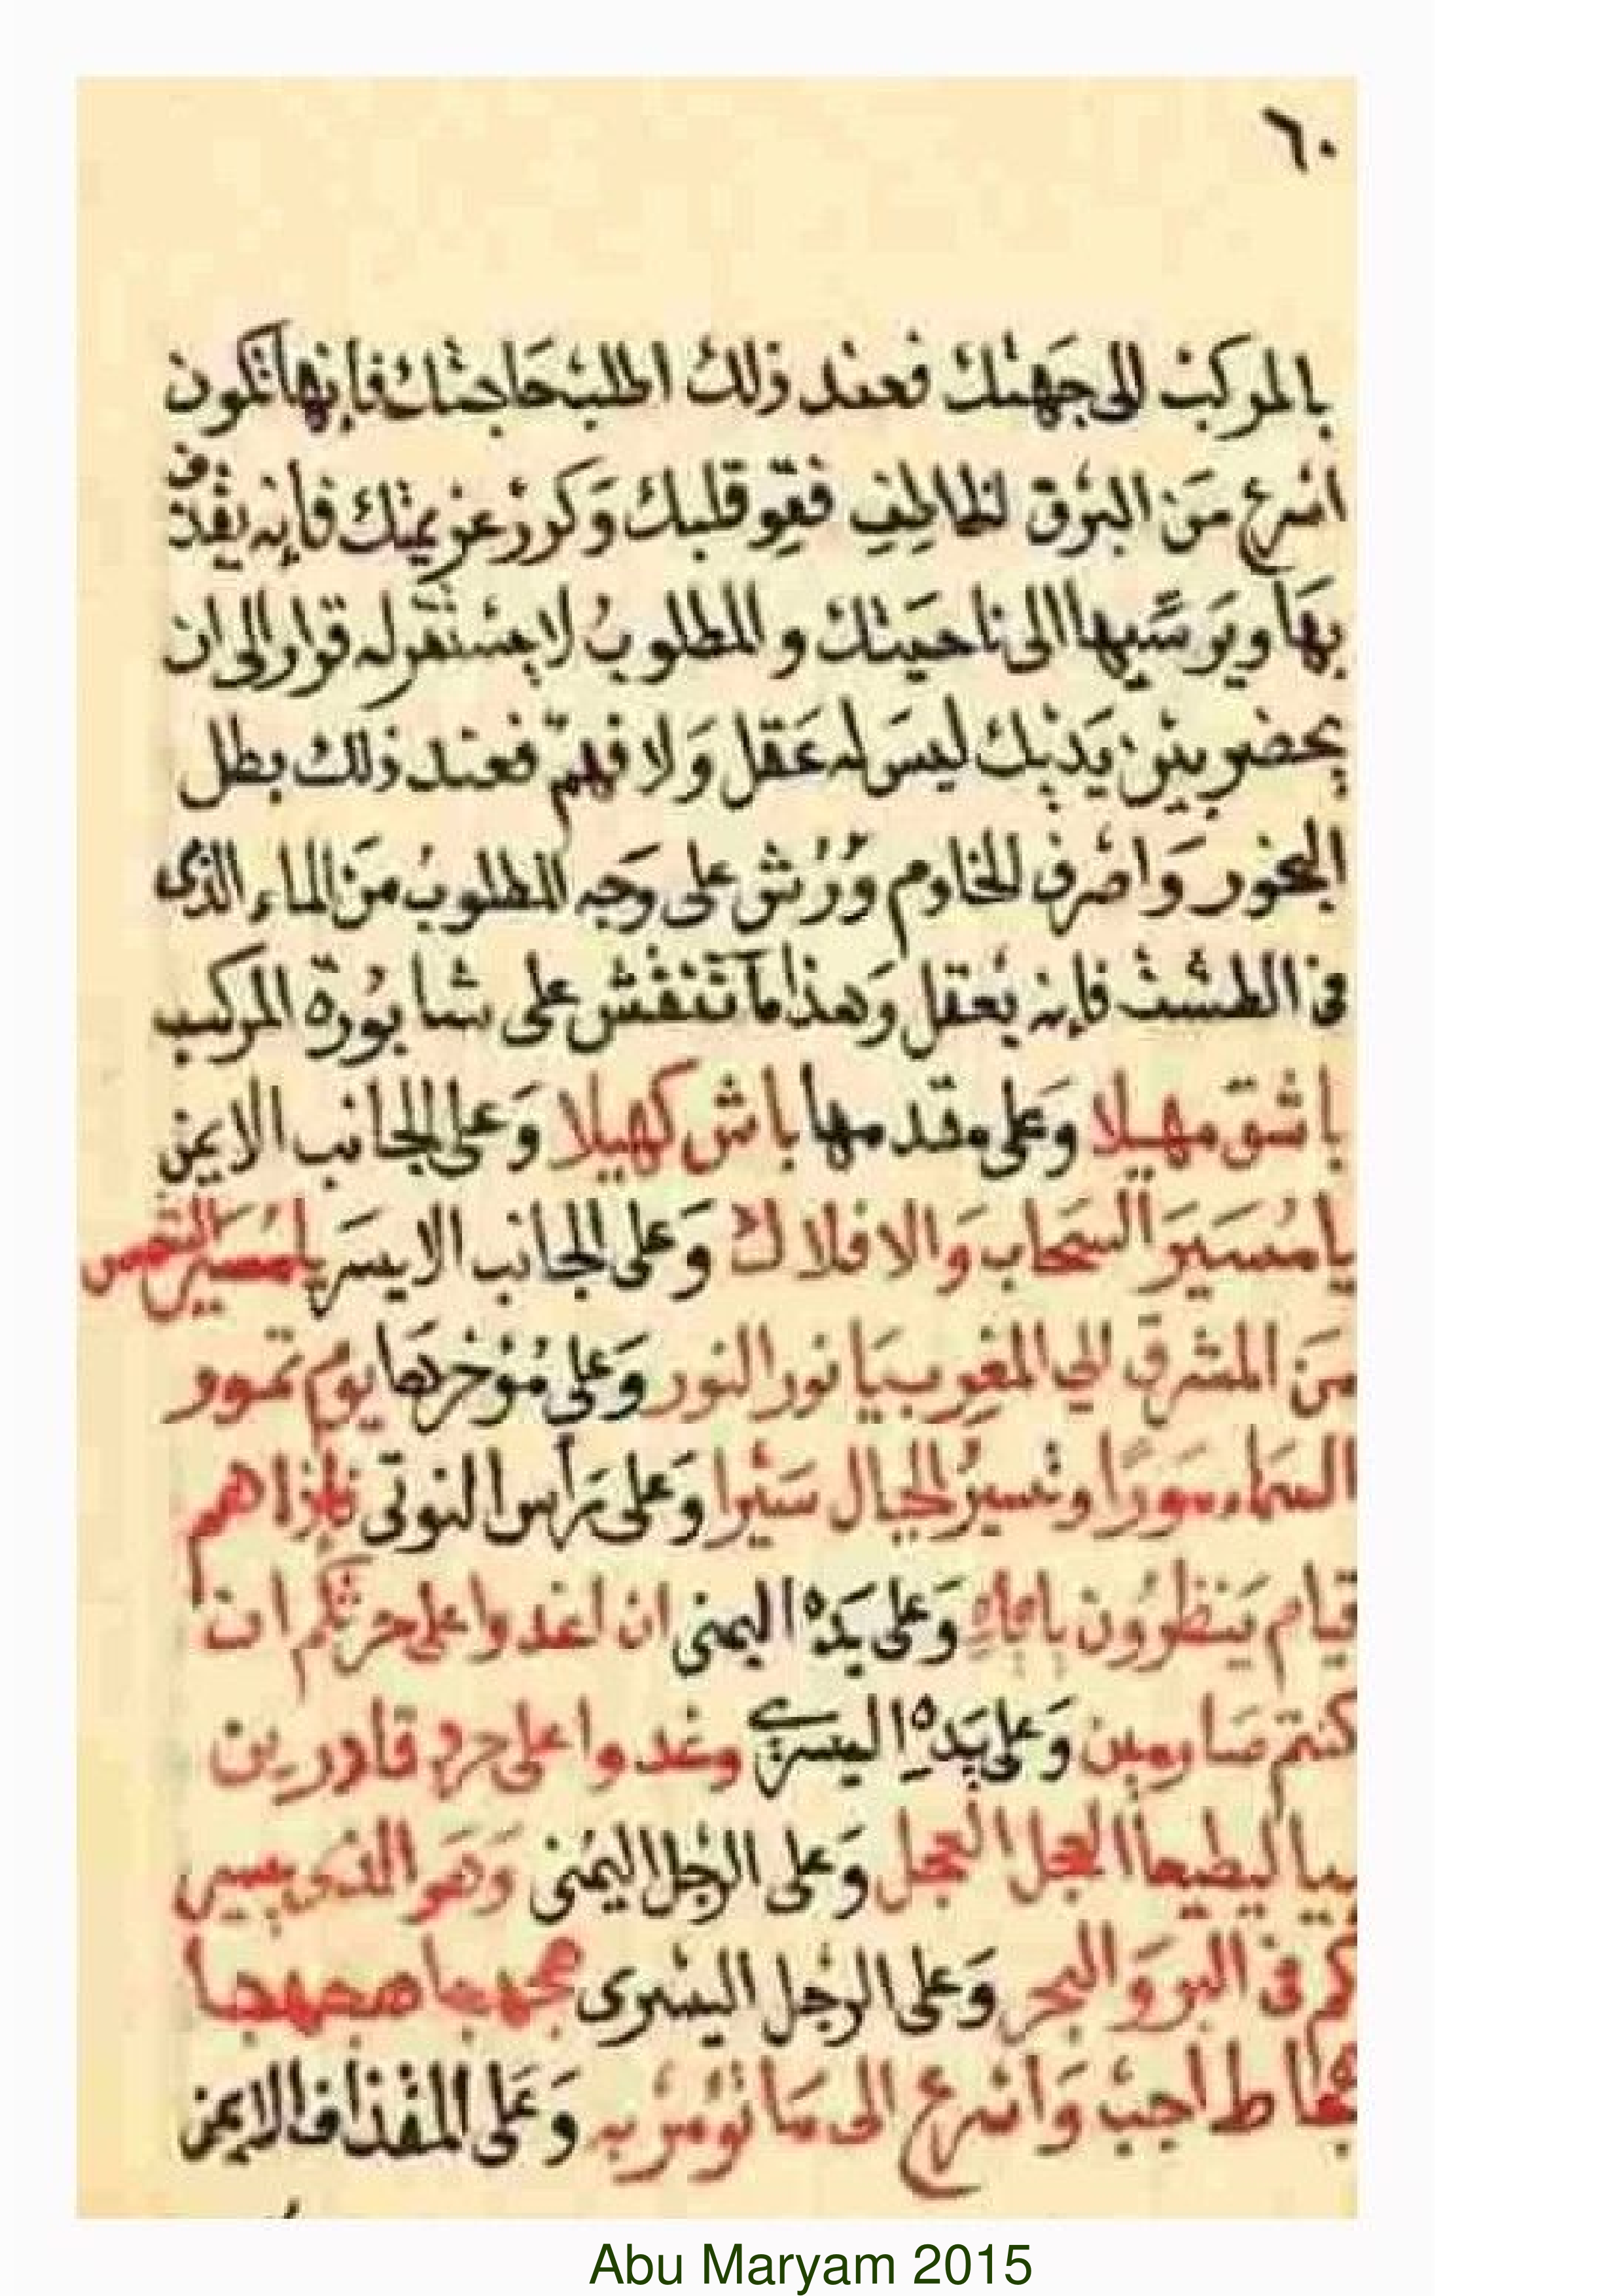 ٦٠
بالمركب الى جهتك فعند ذلك اطلب حاجتك فإنها تكون
اسرع من البرق الخاطف فقو قلبك وكرر عزيمتك فإنه يقذف
بها ويرسيها الى ناحيتك والمطلوب لا يستقر له قرار الى ان
يحضر بين يديك ليس له عقل ولا فهم فعند ذلك بطل
البخور واصرف الخادم ورش على وجه المطلوب من الماء الذى
فى الطشت فإنه يعقل وهذا ما تنقش على شابورة المركب
باشق مهيلا وعلى مقدمها باش كهيلا وعلى الجانب الايمن
يا مسير السحاب والافلاك وعلى الجانب الايسر يا مسير الشمس
من المشرق الي المغرب يا نور النور وعلى مؤخرها يوم تمور
السماء مورا وتسير الجبال سيرا وعلى رأس النوتى فإذا هم
قيام ينظرون ياياه وعلى يده اليمنى ان اغدوا على حرثكم ان
كنتم صارمين وعلى يده اليسرى وغدوا على حرد قادرين
العجل العجل وعلى الرجل اليمنى وهو الذى يسير
كم فى البر والبحر وعلى الرجل اليسرى
اجب واسرع الى ما تؤمر به وعلى المقذاف الايمن
Abu Maryam 2015